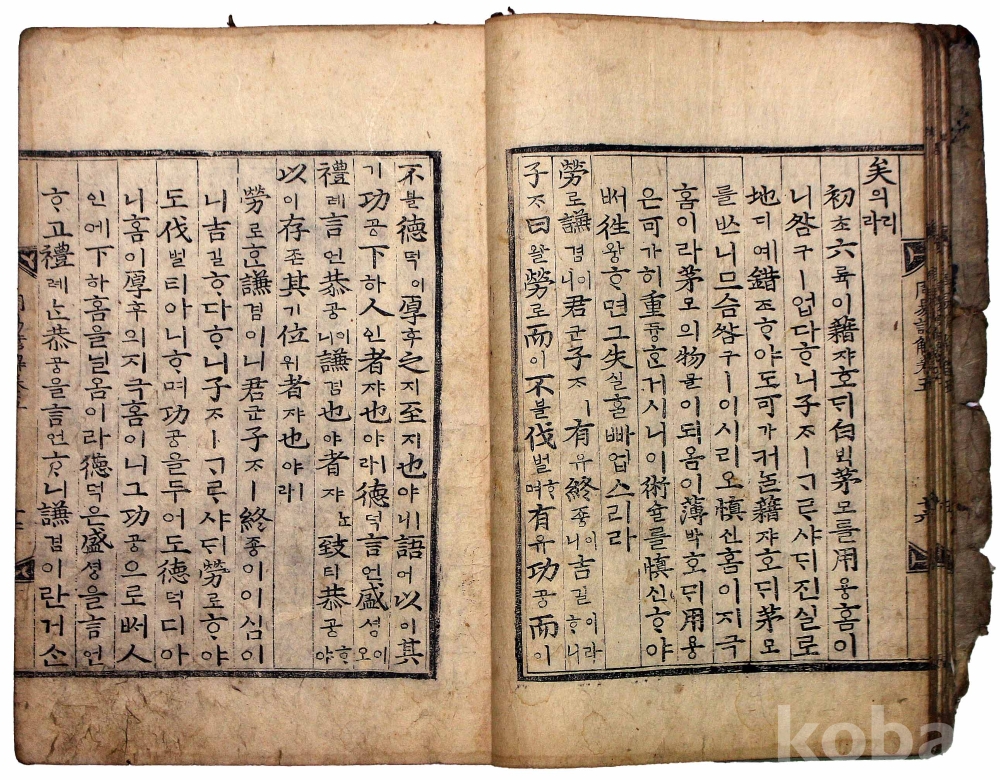 矣의리라
初초六륙이藉쟈호ᄃᆡ白ᄇᆡᆨ茅모를用용홈이
니咎구ㅣ업다ᄒᆞ니子ᄌᆞㅣᄀᆞᄅᆞ샤ᄃᆡ진실로
地디예錯조ᄒᆞ야도可가커늘藉쟈호ᄃᆡ茅모
를ᄡᅳ니므슴咎구ㅣ이시리오愼신홈이지극
홈이라茅모의物믈이되옴이薄박호ᄃᆡ用용
은可가히重듕ᄒᆞᆫ거시니이術슐를愼신ᄒᆞ야
ᄡᅥ往왕ᄒᆞ면그失실홀빠업스리라
勞로謙겸이니君군子ᄌᆞㅣ有유終죵이니吉길ᄒᆞ니이라
子ᄌᆞ曰왈勞로而이不블伐벌ᄒᆞ며有유功공而이
周易諺解卷五
十六
不블德덕이厚후之지至지也야ㅣ니語어以이其
기功공下하人인者쟈也야ㅣ라德덕言언盛셩이오
禮례言언恭공이니謙겸也야者쟈ᄂᆞᆫ致티恭공ᄒᆞ야
以이存존其기位위者쟈也야ㅣ라
勞로ᄒᆞᆫ謙겸이니君군子ᄌᆞㅣ終죵이이심이
니吉길ᄒᆞ다ᄒᆞ니子ᄌᆞㅣᄀᆞᄅᆞ샤ᄃᆡ勞로ᄒᆞ야
도伐벌티아니ᄒᆞ며功공을두어도德덕디아
니홈이厚후의지극홈이니그功공으로ᄡᅥ人
인에下하홈을닐옴이라德덕은盛셩을言언
ᄒᆞ고禮례ᄂᆞᆫ恭공을言언ᄒᆞ니謙겸이란거ᄉᆞᆫ
koba